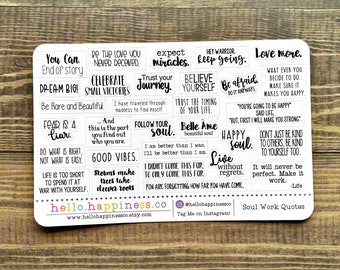 You Can.
End of story
BE THE LOVE YOU
NEVER RECEIVED.
expect
miracles.
HEY WARRIOR,
keep going.
Love more.
DREAM BIG!
CELEBRATE
SMALL VICTORIES
Trust your
Journey
BELIEVE
YOURSELF
Be afraid.
DO IT ANYWAYS.
WHAT EVER YOU
DECIDE TO DO
MAKE SURE IT
MAKES YOU HAPPY.
Be Rare and Beautiful
I have traveled through
madness to find myself
TRUST THE TIMING
OF YOUR LIFE.
"YOU'RE GOING TO BE HAPPY"
SAID LIFE,
"BUT, FIRST I WILL MAKE YOU STRONG."
FEAR IS A
liar.
And this
is the part
you find out
who you are.
FOLLOW YOUR
SOUL.
Belle Âme
beautiful soul
HAPPY
SOUL.
DON'T JUST BE KIND
TO OTHERS, BE KIND
TO YOURSELF TOO.
DO WHAT IS RIGHT,
NOT WHAT IS EASY.
GOOD VIBES.
I am better than I was.
I'll be better than I am.
Live
without
regrets.
It will never be
perfect. Make it
work.
-Life
LIFE IS TOO SHORT
TO SPEND IT AT
WAR WITH YOURSELF.
Storms make
trees take
deeper roots
I DIDN'T COME THIS FAR,
TO ONLY COME THIS FAR.
YOU ARE FORGETTING HOW FAR YOU HAVE COME.
hello.happiness.co
www.hellohappinessco.etsy.com
@hellohappinessco
Tag Me on Instagram!
Soul Work Quotes